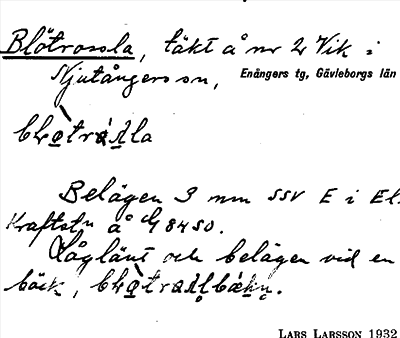 Blötrossla, täkt å nr 2 Vik i
Njutångers sn, Enångers tg, Gävleborgs län
Belägen 3 mm SSV E i El.
Kraftstn å 8450.
Låglänt och belägen vid en
bäck,
LARS LARSSON 1932